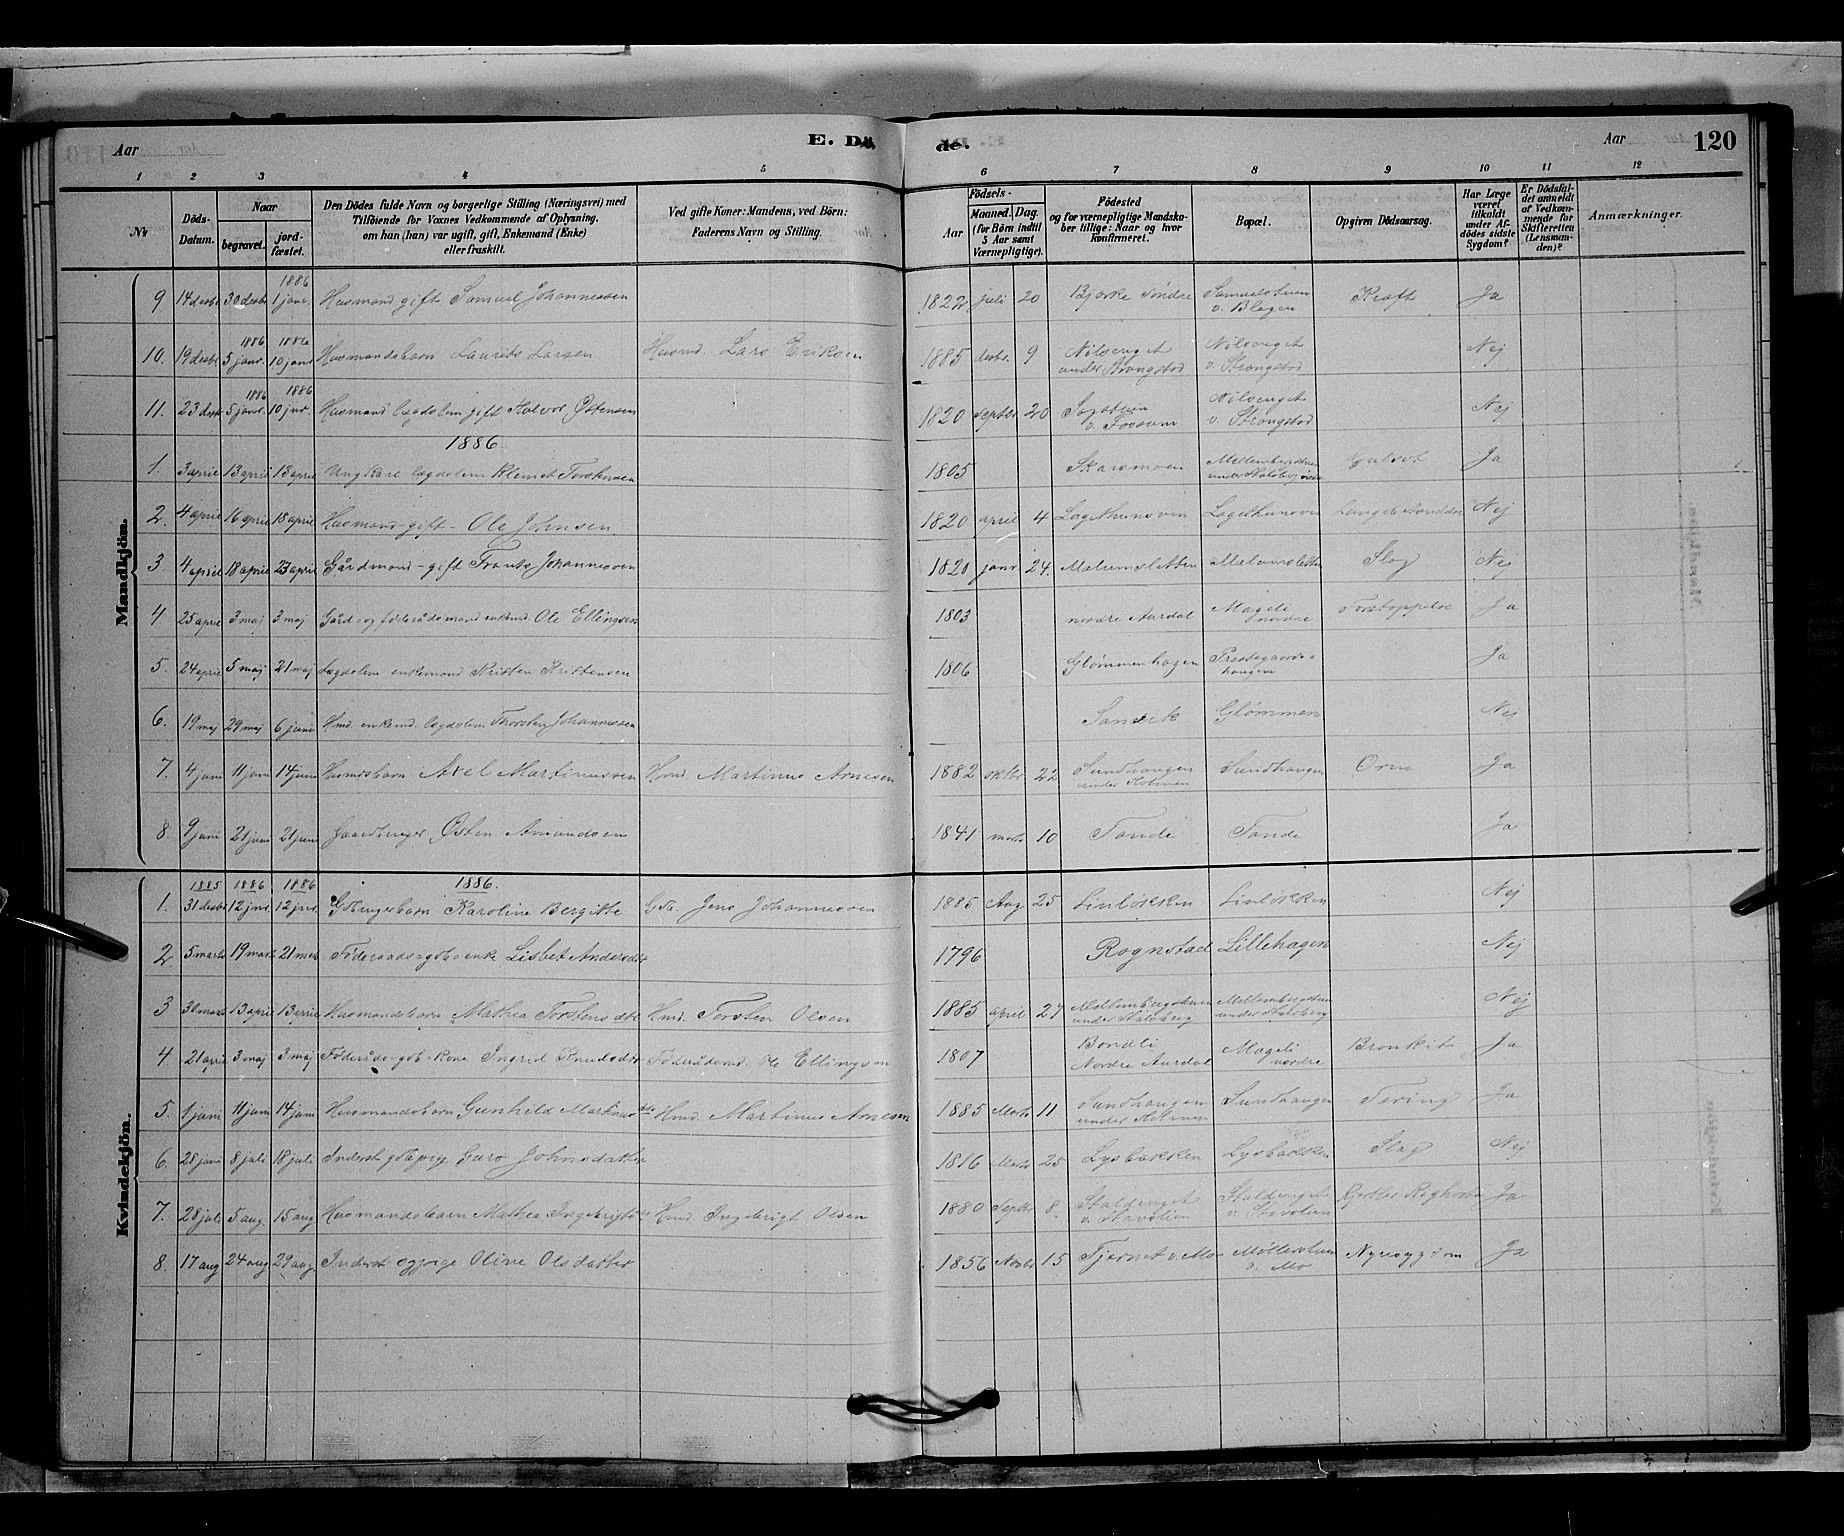 Aar
E. Döde.
Aar
120
1 2 3 4 5 6 7 8 9 10 11 12
Nr
Döds-Datum.
Naar
begravet.
jord-fæstet.
Den Dödes fulde Navn og borgerlige Stilling (Næringsvei) med
Tilföiende for Voxnes Vedkommende af Oplysning,
om han (hun) var ugift, gift, Enkemand (Enke)
eller fraskilt.
Ved gifte Koner: Mandens, ved Börn:
Faderens Navn og Stilling.
Födsels-
Aar
Maaned. Dag.
(for Börn indtil
5 Aar samt
Værnepligtige).
Födested
og for værnepligtige Mandska-
ber tillige: Naar og hvor
konfirmeret.
Bopæl.
Opgiven Dödsaarsag.
Har Læge
været
tilkaldt
under Af-
dödes sidste
Sygdom?
Er Dödsfal-
det anmeldt
af Vedkom-
mende for
Skifteretten
(Lensman-
den)?
Anmærkninger.
Mandkjön.
1886
9 14 desbr 30 desbr 1 janr. Husmand gift Samuel Johannessen 1822 juli 20 Bjærke söndre Samuelstuen v. Blegen Kræft Ja
1886 1886
10. 19 desbr 5 janr. 10 janr Husmandsbarn Laurits Larsen Husmd. Lars Eriksen 1885 desbr. 9 Nilsenget under Strangstad Nilsenget v. Strangstad Nej
1886 1886
11. 23 desb 5 janr. 10 jnr. Husmand lægdslem gift Halvor Østensen 1820 septbr 20 v. Fossum Nilsenget v. Strangstad Nej
1886.
1. 3 april 13 april 13 april Ungkarl lægdslem Klemet 1805 Skarsmoen Mellembergstuen Gulsot Ja
2. 4 april 16 april 18 april Husmand gift Ole Johnsen 1820 april 4 Nej
3 4 april 18 april 23 april Gårdmand gift Frants Johannesen 1820 janr 24. Melumsletten Melumsletten Slag Nej
4 25 april 3 maj 3 maj Gård- og föderådsmand enkemd. Ole Ellingsen 1803 nordre Aurdal Mageli nordre Forstoppelse Ja
5. 24 april 5 maj 21 maj Lægdslem enkemand Kristen Kristensen 1806 Glömmenhagen Prestegaards-haugen Ja
6. 19 maj 29 maj 6 juni Hmd. enkemd. lægdslem Thorsten Johannessen Sandvik Glömmen Nej
7. 4 juni 11 juni 14 juni Husmdsbarn Axel Martinussen Hmd. Martinus Arnesen 1882 oktbr 22 Sundhaugen Sundhaugen Orm Ja
8. 9 juni 21 juni 21 juni Gaardbruger Østen Amundsen 1841 marts 10 Tande Tande Ja
Kvindekjön.
1885 1886 1886 1886.
1. 31 desbr 12 jnr. 12 jnr. Gdbrugerbarn Karoline Bergitte Gdb. Jens Johannessen 1885 Aug 25 Linlökken Linlökken Nej
2. 5 marts 19 marts 21 mrts Föderaads-gb-enke Lisbet Andersdtr 1796 Rognstad Lillehagen Nej
3 30 marts 13 april 13 april Husmandsbarn Mathea Torstensdtr. Hmd. Torsten Olsen 1885 april 27 Mellembergstuen under Stalsberg Mellembergstuen under Stalsberg Nej
4. 21 april 3 maj 3 maj Föderåds-gb-kone Ingrid Knudsdtr Föderådsmd. Ole Ellingsen 1807 Bondli Nordre Aurdal Mageli nordre Bronkit Ja
5. 1 juni 11 juni 14 juni Husmandsbarn Gunhild Martinusdtr Hmd. Martinus Arnesen 1885 Marts 11 Sundhaugen Sundhaugen Tæring Ja
6. 28 juni 8 juli 18 juli Inderst gbpige Guro Johnsdatter 1816 Marts 25 Lysbakken Lysbakken Slag Nej
7. 28 juli 5 aug. 15 aug Husmandsbarn Mathea Ingebrigts Hmd. Ingebrigt Olsen 1880 Septbr 8. v. Stavslien v. Stavslien Ja
8. 17 aug 24 aug 29 aug Inderst pige Oline Olsdatter 1856 Novbr 15 Tjernet v. Mo Möllerstuen v. Mo Nyresygdom Ja